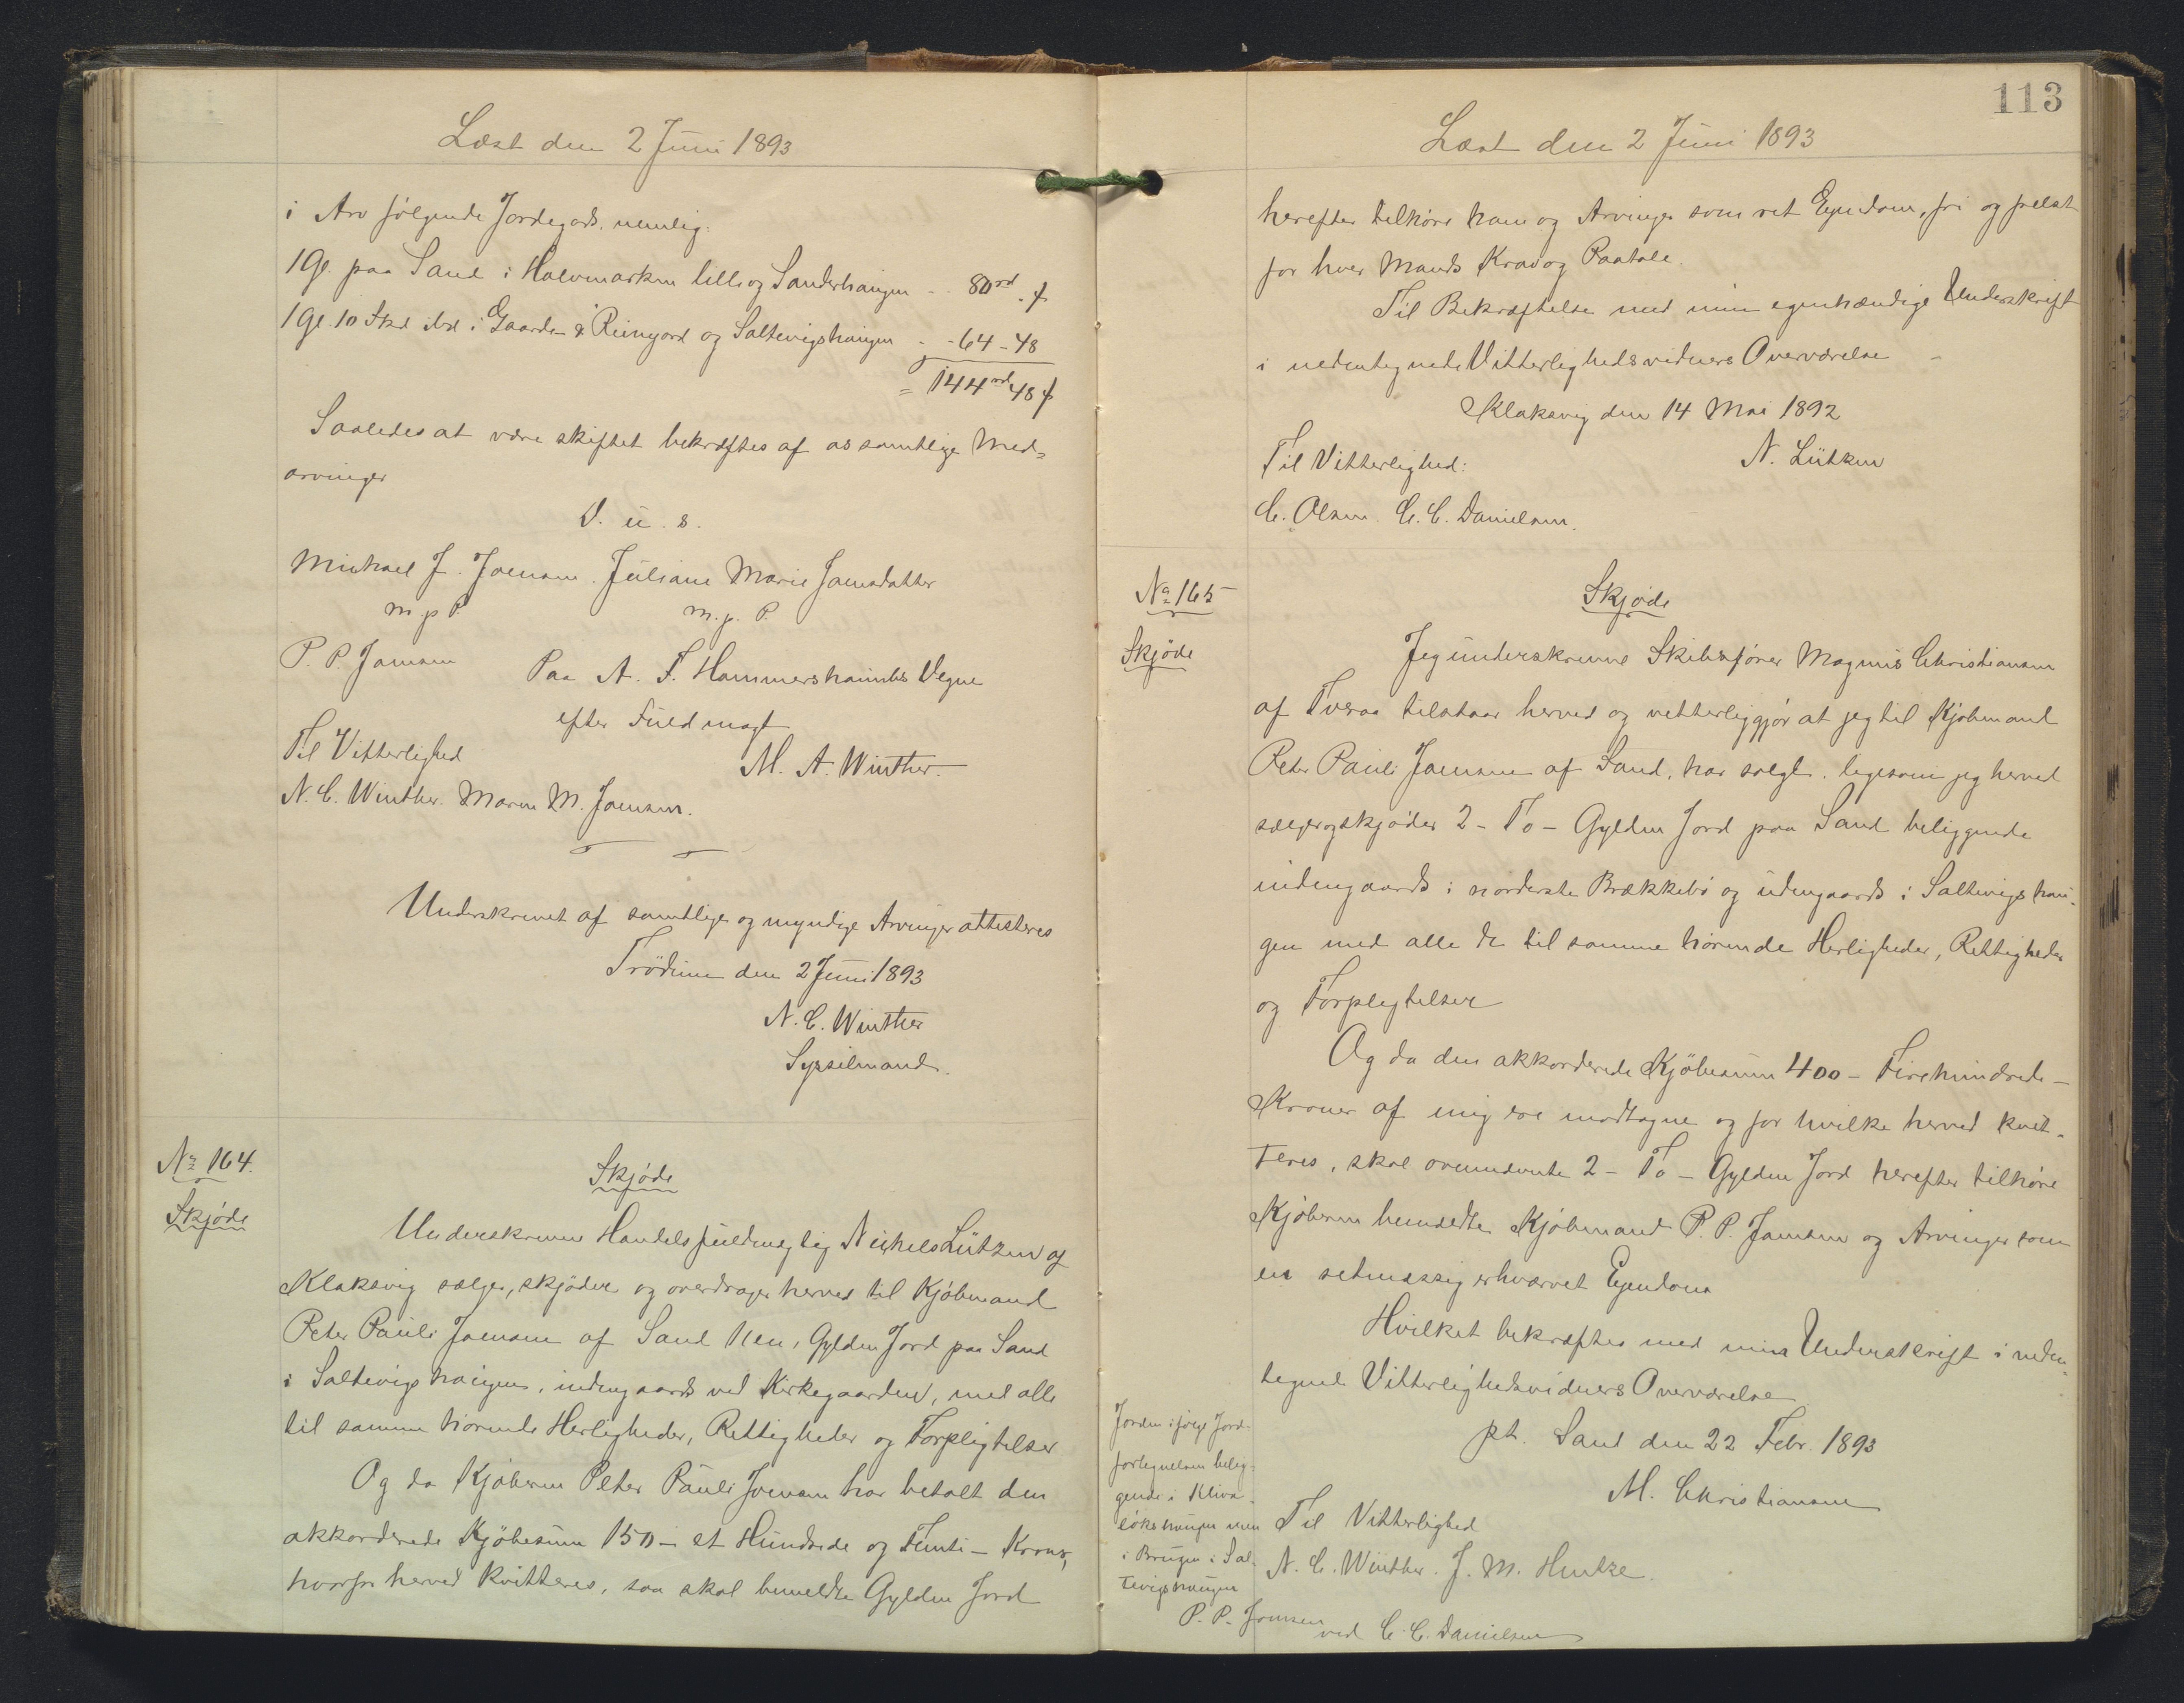 Læst den 2 Juni 1893
i Arv følgende Jordegods, nemlig:
1 Gl. paa Sand i Halvmarken lille og Sanderhaugen - - 80rd. - ß
1 Gl. 10 Skd ibd i Gaarden & Reingord og Saltevigshaugen - - 64 - 48
= 144rd 48 ß
Saaledes at være skiftet bekræftes af os samtlige Med=
arvinger
D. u. s.
Michael J. Joensen. Juliane Marie Joensdatter
m. p. P. m. p. P.
P. P. Joensen Paa A. F. Hammershaimbs Vegne
efter Fuldmagt
Til Vitterlighed M. A. Winther.
N. C. Winther. Maren M. Joensen.
Underskrevet af samtlige og myndige Arvinger attesteres
Trödum den 2 Juni 1893
N. C. Winther
Sysselmand.
No 164.
Skjøde
Skjøde
Underskrevne Handelsfuldmægtig Nichels Lützen af
Klaksvig sælger, skjøder og overdrager herved til Kjøbmand
Peter Pauli Joensen af Sand 1 en, Gylden Jord paa Sand
i Saltevigshaugen, indengaards ved Kirkegaarden, med alle
til samme hørende Herligheder, Rettigheder og Forpligtelser
Og da Kjøberen Peter Pauli Joensen har betalt den
akkorderede Kjøbesum 150 - et Hundrede og Femti - Kroner,
hvorfor herved kvitteres, saa skal bemeldte Gylden Jord
113
Læst den 2 Juni 1893
herefter tilhøre ham og Arvinger som ret Ejendom, fri og frelst
for hver Mands Krav og Paatale.
Til Bekræftelse med min egenhændige Underskrift
i nedentegnede Vitterlighedsvidners Overværelse -
Klaksvig den 14 Mai 1892
Til Vitterlighed: N. Lützen
C. Olsen. C. C. Danielsen.
No 165
Skjøde
Skjøde
Jeg underskrevne Skibsfører Magnus Christiansen
af Tveraa tilstaar herved og vitterliggjør at jeg til Kjøbmand
Peter Pauli Joensen af Sand, har solgt, ligesom jeg herved
sælger og skjøder 2 - To - Gylden Jord paa Sand beliggende
indengaards i nørderste Brækkebø og udengaards i Saltevigshau-
gen med alle de til samme hørende Herligheder, Rettigheder
og Forpligtelser
Og da den akkorderede Kjøbesum 400 - Firehundrede -
Kroner af mig ere modtagne og for hvilke herved kvit-
teres, skal ovennævnte 2 - To - Gylden Jord herefter tilhøre
Kjøberen bemeldte Kjøbmand P. P. Joensen og Arvinger som
en retmæssig erhvervet Ejendom
Hvilket bekræftes med min Underskrift i neden-
tegnede Vitterlighedsvidners Overværelse
pt. Sand den 22 Febr. 1893
M. Christiansen
Til Vitterlighed
N. C. Winther. J. M. Hentze.
Jorden ifølge Jord-
fortegnelsen belig-
gende i Kliva-
løkshaugen men
i Brugen i Sal-
tevigshaugen
P. P. Joensen
ved C. C. Danielsen